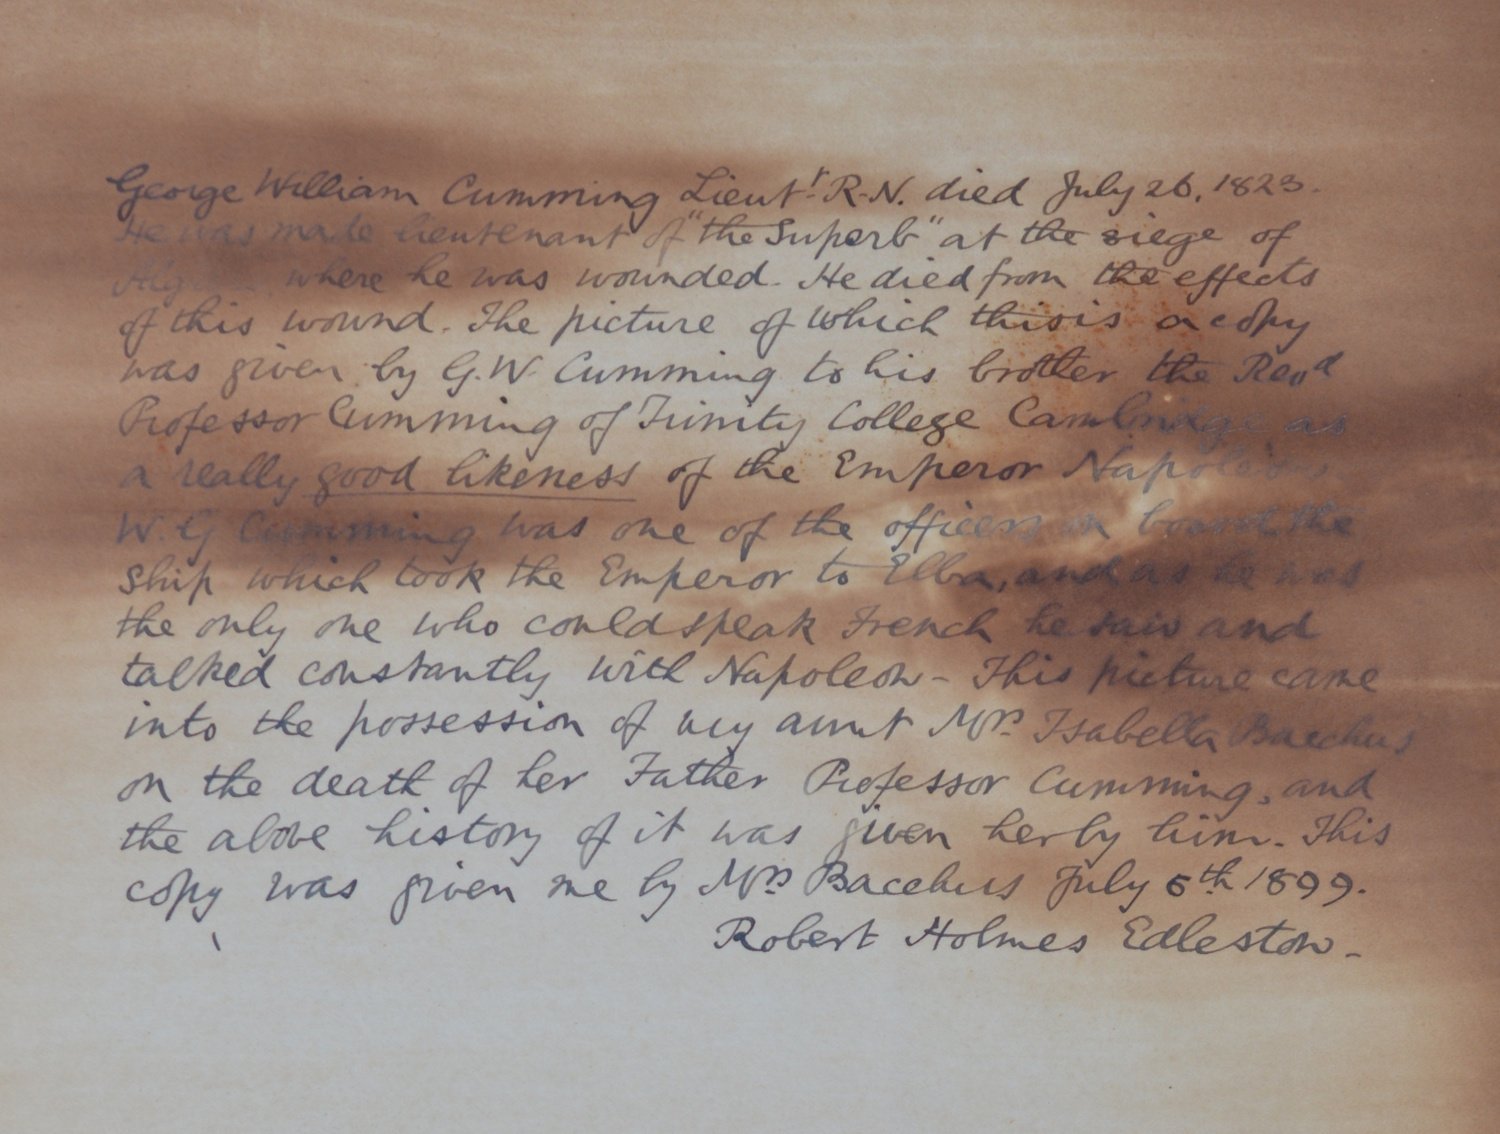 George William Cumming Lieut.r R.N. died July 26, 1823.
He was made lieutenant of "the Superb" at the siege of
where he was wounded. He died from the effects
of this wound. The picture of which this is a copy
was given by G.W. Cumming to his brother the Revd
Professor Cumming of Trinity College Cambridge as
a really good likeness of the Emperor Napoleon
W.G Cumming was one of the officers on board the
ship which took the Emperor to Elba, and as he was
the only one who could speak French he saw and
talked constantly with Napoleon - This picture came
into the possession of my aunt Mrs. Isabella Bacchus
on the death of her Father Professor Cumming, and
the above history of it was given her by him. This
copy was given me by Mrs Bacchus July 6th 1899.
Robert Holmes Edleston -